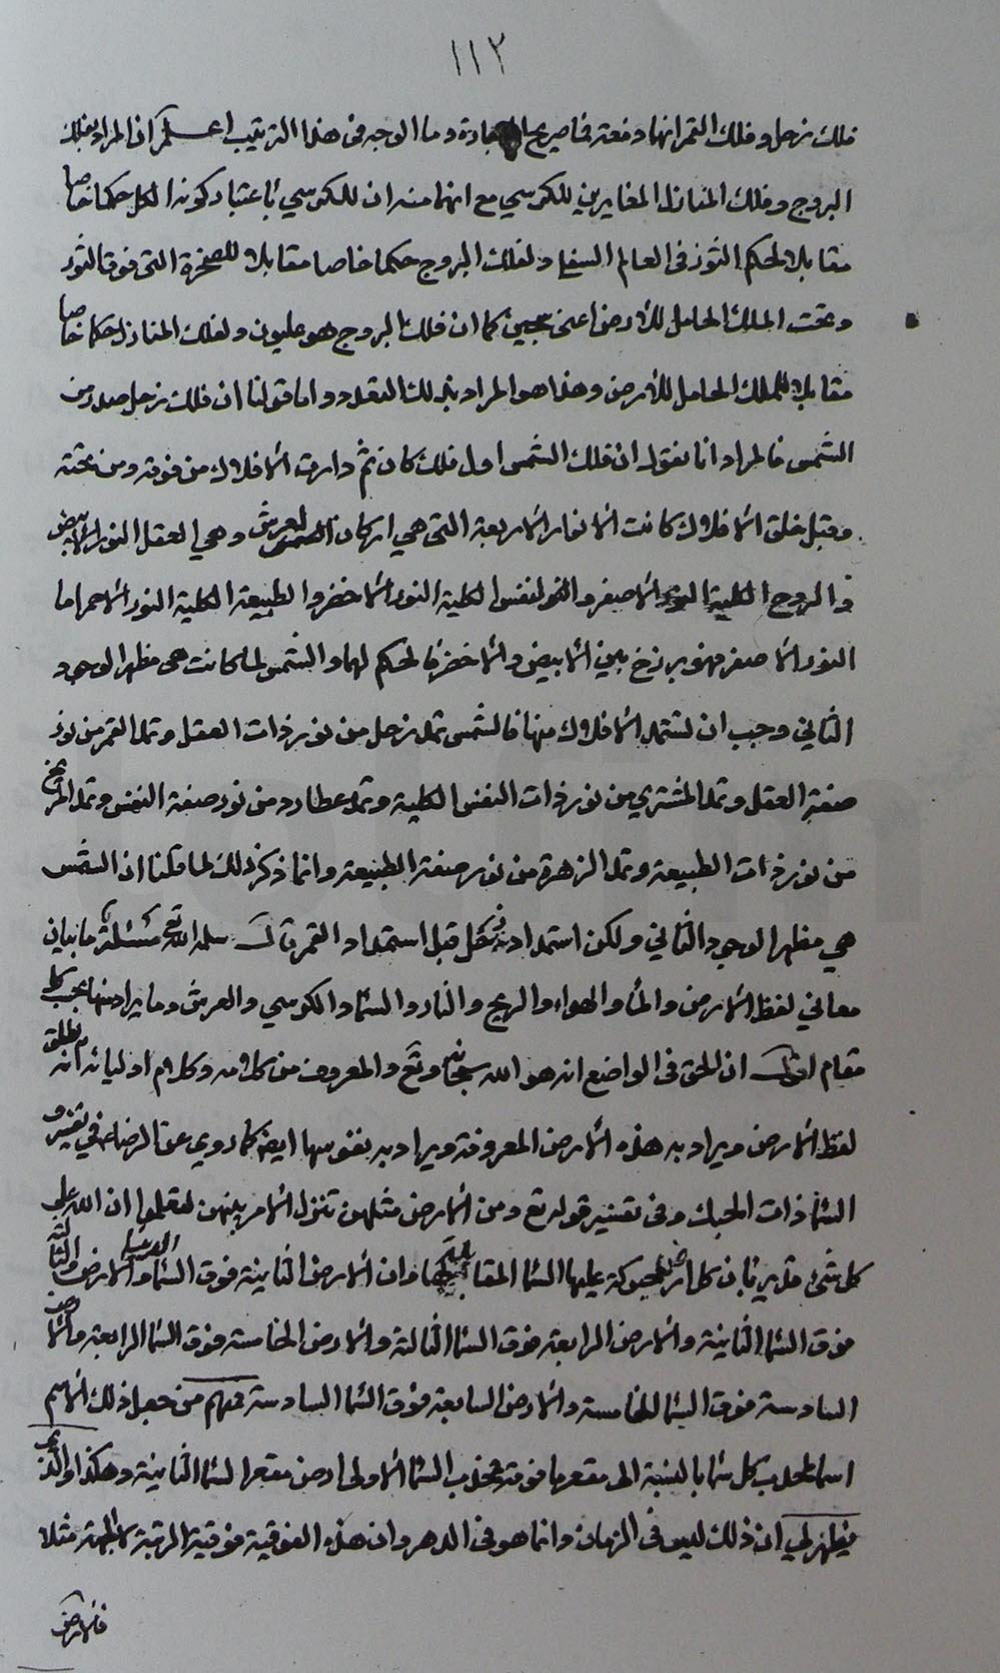 ١١٢
فلك زحل وفلك القمر انهما دفعة فما صريح العبارة وما الوجه في هذا الترتيب اعلم ان المراد بفلك
البروج وفلك المنازل المغايرين للكرسي مع انهما منه ان للكرسي باعتبار كونه الكل حكما خاصا
مقابلا لحكم الثور في العالم السفلي ولفلك البروج حكما خاصا مقابلا للصخرة التي فوق الثور
وتحت الملك الحامل للأرض اعني سجين كما ان فلك البروج هو عليون ولفلك المنازل حكما خاصا
مقابلا للملك الحامل للأرض وهذا هو المراد بذلك التعدد واما قولنا ان فلك زحل صدر من
الشمس فالمراد انا نقول ان فلك الشمس اول فلك كان ثم دارت الافلاك من فوقه ومن تحته
وقبل خلق الافلاك كانت الانوار الاربعة التي هي اركان العرش وهي العقل النور الأبيض
والروح الكلية النور الأصفر والنفس الكلية النور الأخضر والطبيعة الكلية النور الاحمر اما
النور الأصفر فهو برزخ بين الأبيض والأخضر فالحكم لهما والشمس لما كانت هي مظهر الوجود
الثاني وجب ان تستمد الافلاك منها فالشمس تمد زحل من نور ذات العقل وتمد القمر من نور
صفة العقل وتمد المشتري من نور ذات النفس الكلية وتمد عطارد من نور صفة النفس وتمد المريخ
من نور ذات الطبيعة وتمد الزهرة من نور صفة الطبيعة وانما ذكر ذلك لما قلنا ان الشمس
هي مظهر الوجود الثاني ولكن استمداد زحل قبل استمداد القمر قال سلمه الله تع مسئلة ما بيان
معاني لفظ الأرض والماء والهواء والريح والنار والسماء والكرسي والعرش وما يراد منها بحسب كل
مقام اقول ان الحق في الواضع انه هو الله سبحانه وتع والمعروف من كلامه وكلام اوليائه انه يطلق
لفظ الأرض ويراد به هذه الأرض المعروفة ويراد به نفوسها ايضا كما روي عن الرضا في تفسير و
السماء ذات الحبك وفي تفسير قوله تع ومن الأرض مثلهن تتنزل الأمر بينهن لتعلموا ان الله على
كل شيء قدير فان كل ارض محبوكة عليها السماء المقابلة لها وان الأرض الثانية فوق السماء الدنيا والارض الثالثة
فوق السماء الثانية والأرض الرابعة فوق السماء الثالثة والأرض الخامسة فوق السماء الرابعة والأرض
السادسة فوق السماء الخامسة والأرض السابعة فوق السماء السادسة فمنهم من جعل ذلك الاسم
اسما لمحدب كل سماء بالنسبة الى مقعر ما فوقه فمحدب السماء الأولى ارض مقعر السماء الثانية وهكذا والذي
يظهر لي ان ذلك ليس في الزمان وانما هو في الدهر وان هذه الفوقية فوقية الرتبة لا الجهة مثلا
فالارض